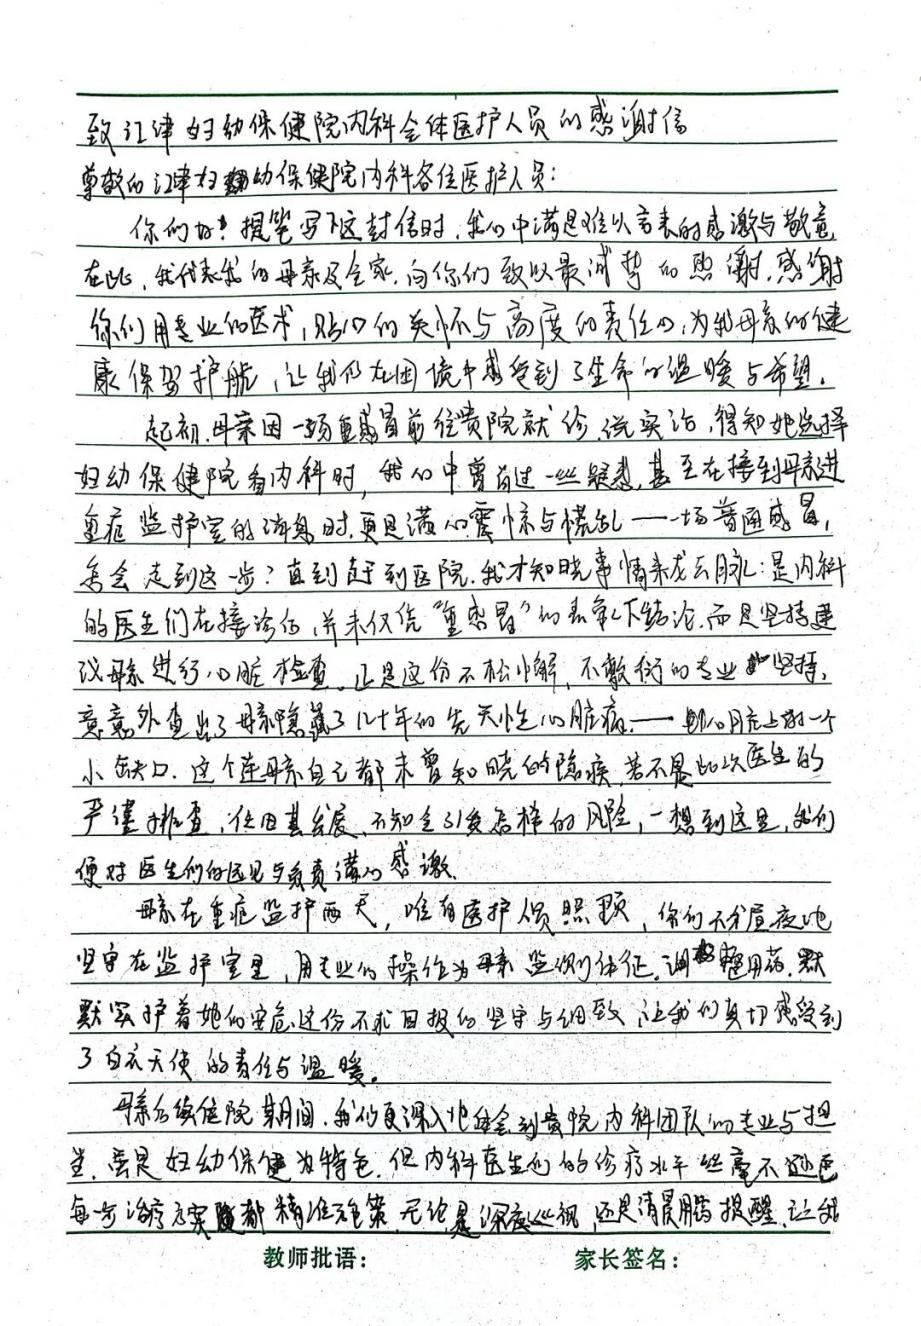 致江津妇幼保健院内科全体医护人员的感谢信
尊敬的江津妇幼保健院内科各位医护人员：
你们好！提笔写下这封信时，我心中满是难以言表的感激与敬意，
在此，我代表我的母亲及全家，向你们致以最诚挚的感谢，感谢
你们用专业的医术，贴心的关怀与高度的责任心，为我母亲的健
康保驾护航，让我们在困境中感受到了生命的温暖与希望。
起初，母亲因一场重感冒前往贵院就诊，说实话，得知她选择
妇幼保健院看内科时，我心中曾有过一丝疑惑，甚至在接到母亲进
重症监护室的消息时，更是满心震惊与慌乱——一场普通感冒，
怎会走到这一步？直到赶到医院，我才知晓事情来龙去脉：是内科
的医生们在接诊后，并未仅凭“重感冒”的表象下结论，而是坚持建
议母亲进行心脏检查。正是这份不松懈、不敷衍的专业坚持，
意意外查出了母亲隐藏了几十年的先天性心脏病——心脏上的一个
小缺口。这个连母亲自己都未曾知晓的隐疾，若不是此次医生的
严谨排查，任由其发展，不知会引发怎样的风险，一想到这里，我们
便对医生们的远见与负责满心感激。
母亲在重症监护两天，唯有医护人员照顾，你们不分昼夜地
坚守在监护室里，用专业的操作为母亲监测体征、调整用药，默
默守护着她的安危，这份不求回报的坚守与细致，让我们真切感受到
了白衣天使的责任与温暖。
母亲后续住院期间，我们更深入地体会到贵院内科团队的专业与担
当，虽是妇幼保健为特色，但内科医生们的诊疗水平丝毫不逊色
每一步治疗方案都精准施策，无论是深夜巡视，还是清晨用药提醒，让我
教师批语：
家长签名：